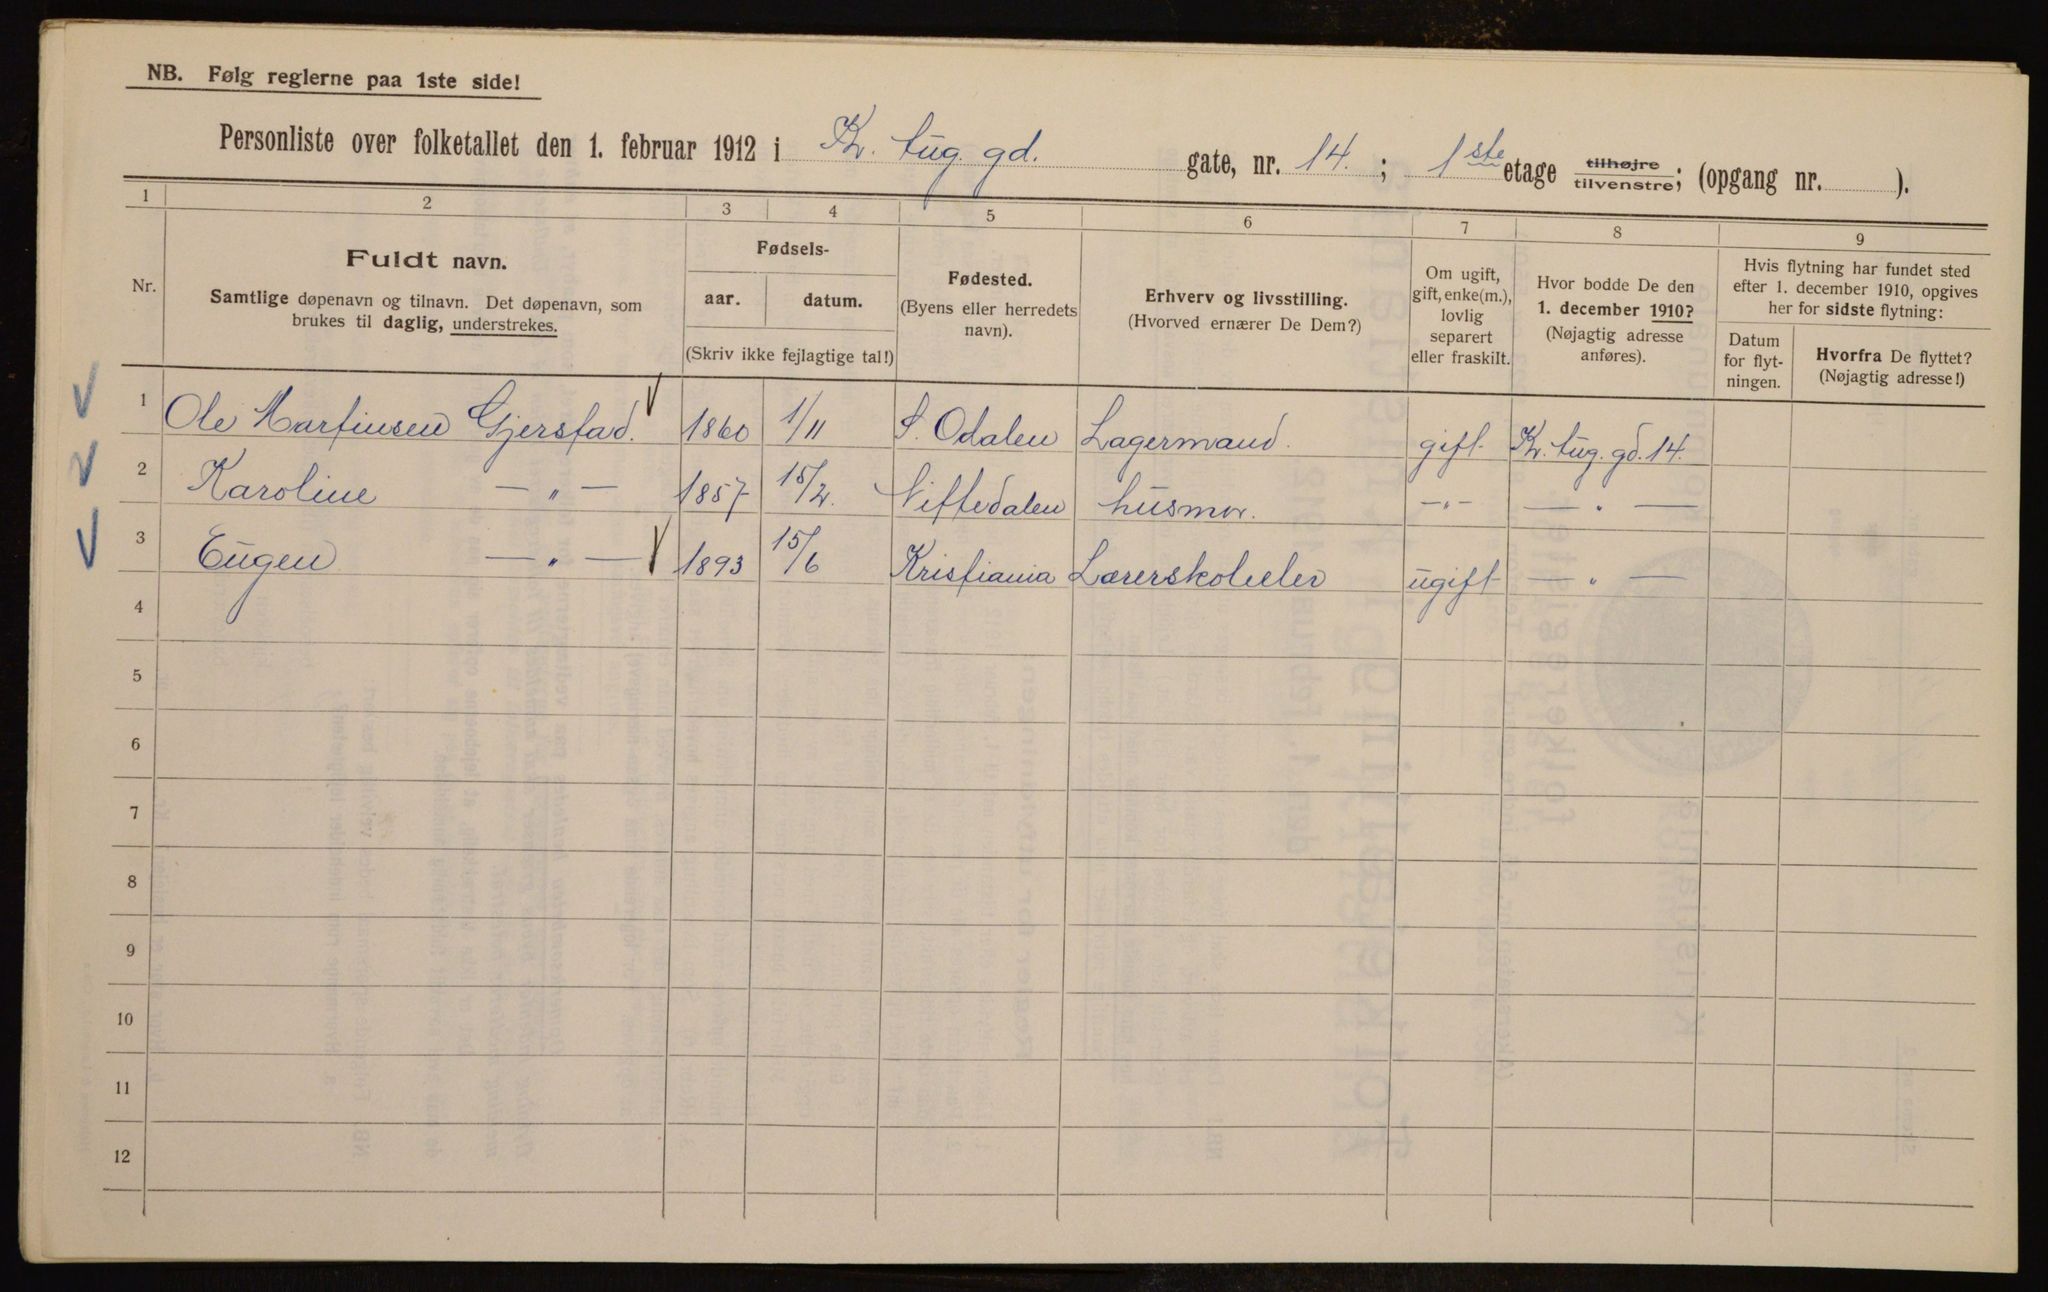 NB. Følg reglerne paa 1ste side!
Personliste over folketallet den 1. februar 1912 i Kr. tug. gd. gate, nr. 14. ; 1ste etage tilhøjre tilvenstre; (opgang nr. ).
1 2 3 4 5 6 7 8 9
Nr.
Fuldt navn.
Samtlige døpenavn og tilnavn. Det døpenavn, som
brukes til daglig, understrekes.
Fødsels-
aar. datum.
(Skriv ikke fejlagtige tal!)
Fødested.
(Byens eller herredets
navn).
Erhverv og livsstilling.
(Hvorved ernærer De Dem?)
Om ugift,
gift, enke(m.),
lovlig
separert
eller fraskilt.
Hvor bodde De den
1. december 1910?
(Nøjagtig adresse
anføres).
Hvis flytning har fundet sted
efter 1. december 1910, opgives
her for sidste flytning:
Datum
for flyt-
ningen.
Hvorfra De flyttet?
(Nøjagtig adresse!)
1 Ole Martinsen Gjerstad. 1860 1/11 S. Odalen Lagermand. gift. Kr. tug. gd. 14.
2 Karoline — „ — 1857 15/2. Nittedalen husmor. — „ — — „ —
3 Eugen — „ — 1893 15/6 Kristiania Lærerskoleelev ugift — „ —
4
5
6
7
8
9
10
11
12